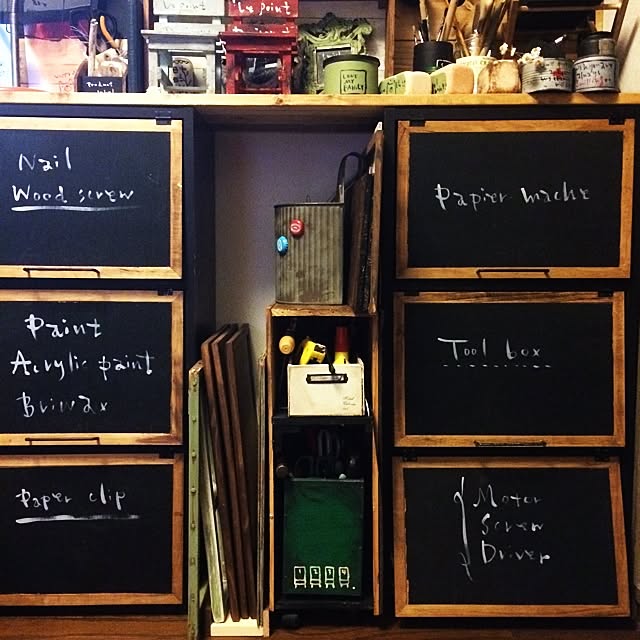 Nail
Wood screw
Paint
Acrylic paint
Briwax
Paper clip
Papier mache
Tool box
Motor
Screw
Driver
LOVE MY
FAMILY
1 2 3 4